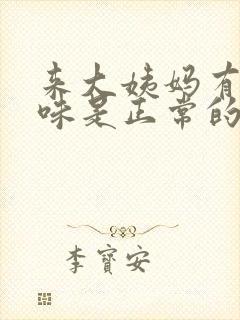 来大姨妈有
味是正常的
李寶安